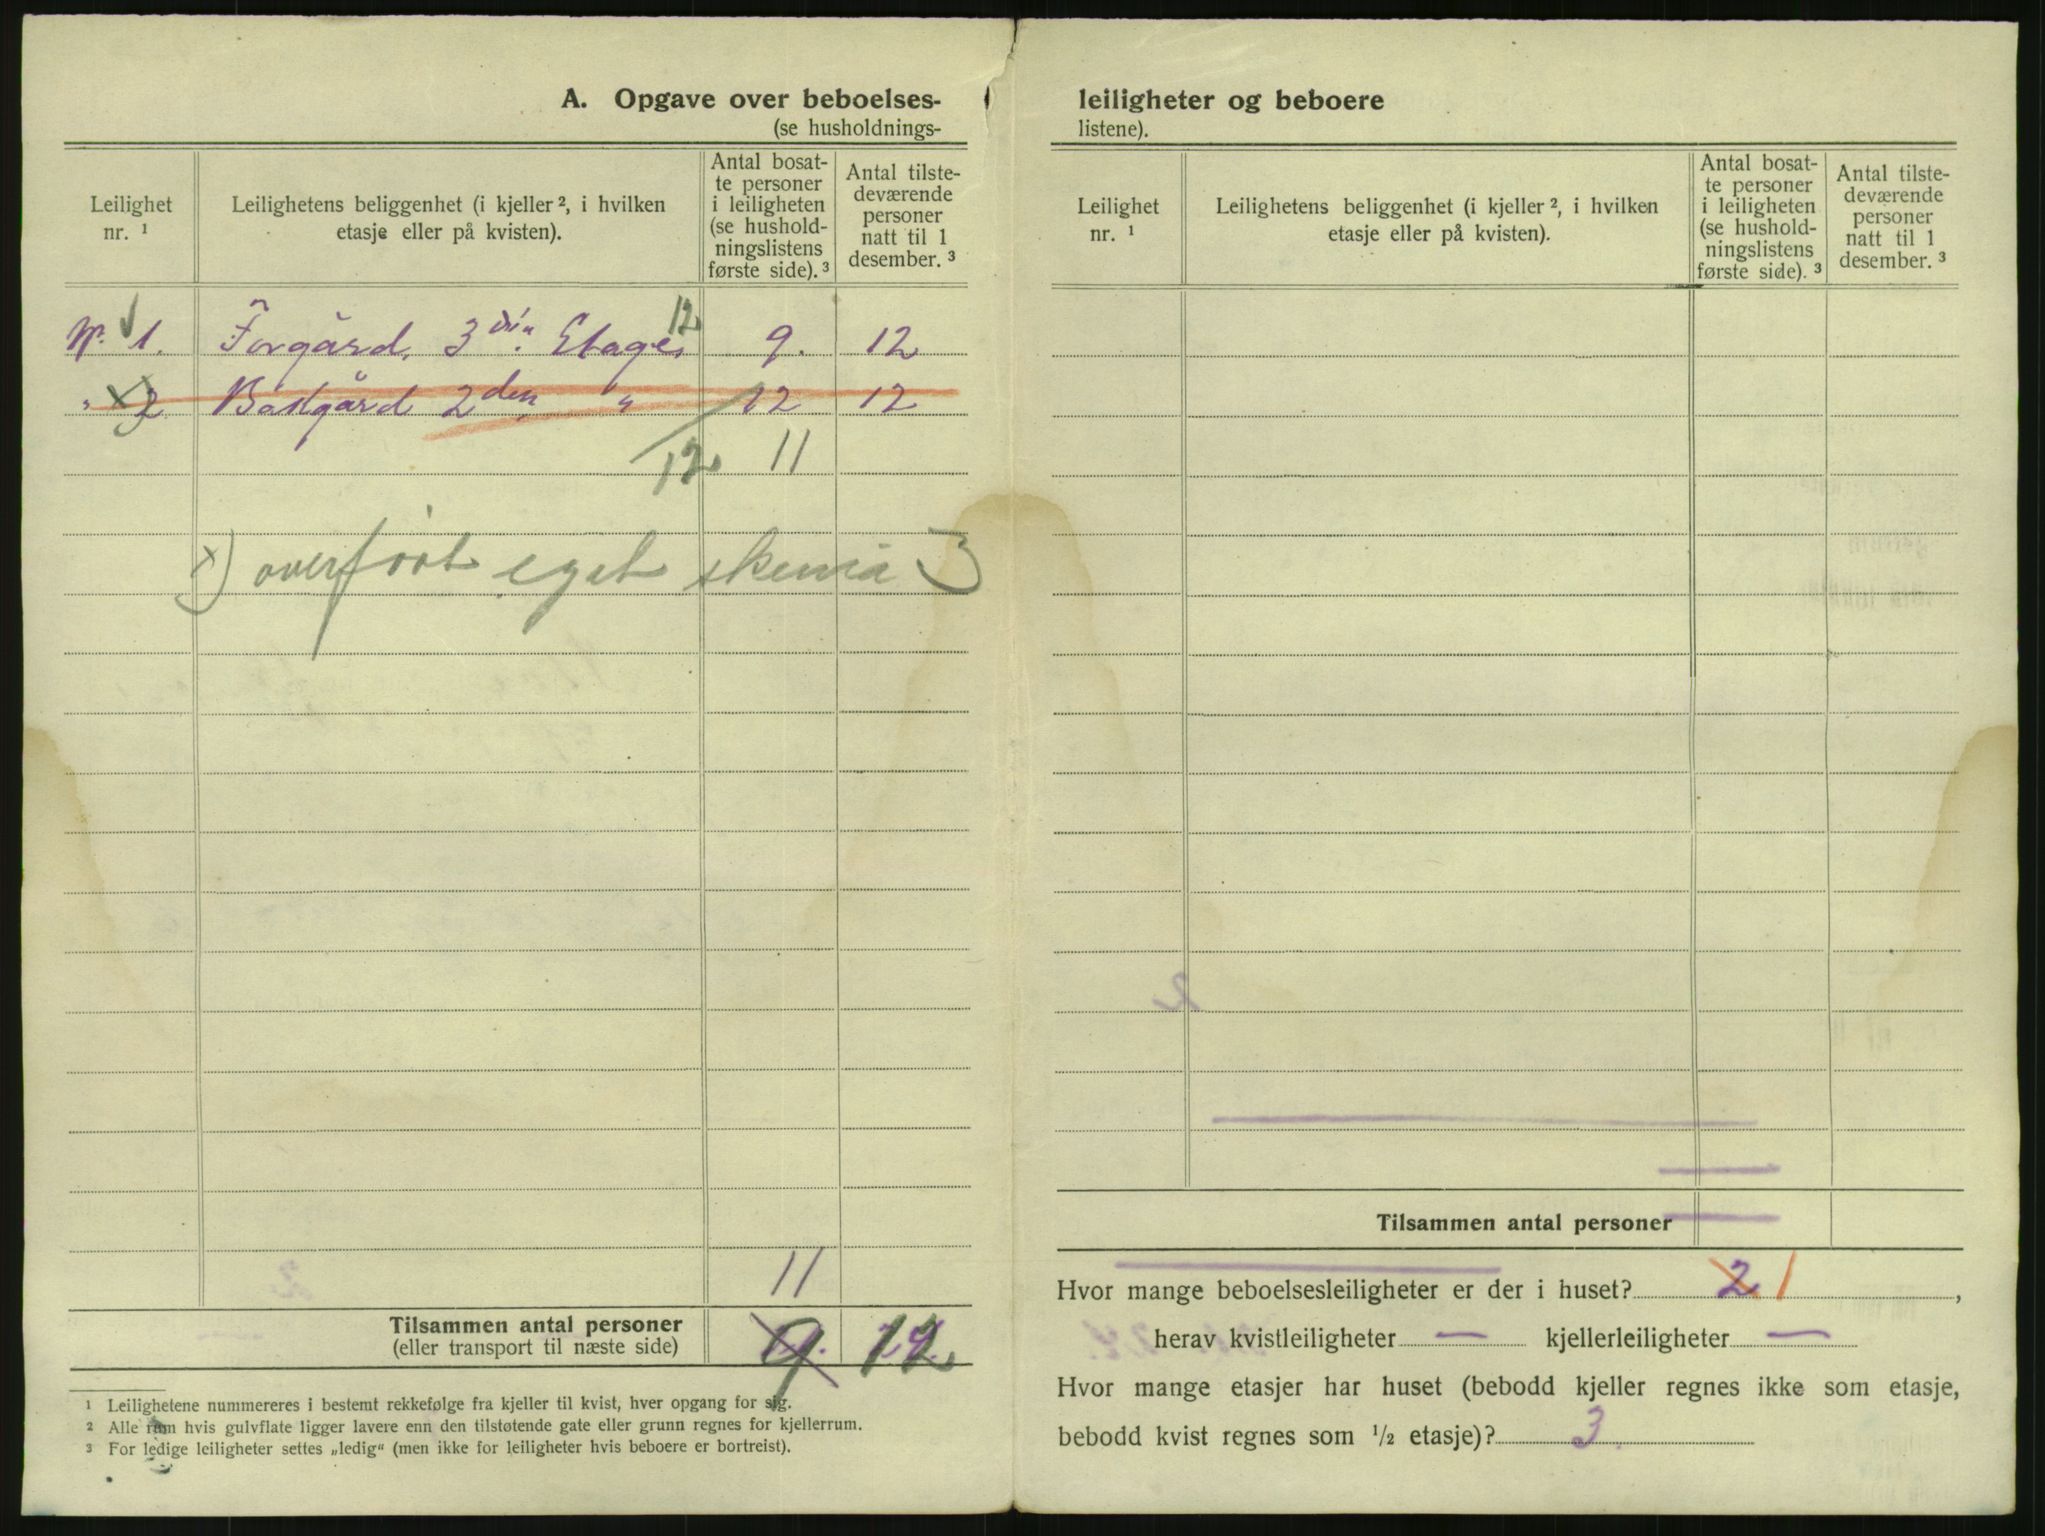 A. Opgave over beboelses-
(se husholdnings-
Leilighet nr. ¹
Leilighetens beliggenhet (i kjeller ², i hvilken etasje eller på kvisten).
Antal bosat-
te personer
i leiligheten
(se hushold-
ningslistens
første side). ³
Antal tilste-
deværende
personer
natt til 1
desember. ³
12
Nr. 1. Forgård. 3die. Etage. 9. 12
" x) 2 Bakgård 2den " 12 12
12 11
x) overført eget skema 3
11
Tilsammen antal personer 9 12
(eller transport til næste side)
¹ Leilighetene nummereres i bestemt rekkefølge fra kjeller til kvist, hver opgang for sig.
² Alle rum hvis gulvflate ligger lavere enn den tilstøtende gate eller grunn regnes for kjellerrum.
³ For ledige leiligheter settes „ledig“ (men ikke for leiligheter hvis beboere er bortreist).
leiligheter og beboere
listene).
Leilighet nr. ¹
Leilighetens beliggenhet (i kjeller ², i hvilken etasje eller på kvisten).
Antal bosat-
te personer
i leiligheten
(se hushold-
ningslistens
første side). ³
Antal tilste-
deværende
personer
natt til 1
desember. ³
Tilsammen antal personer
Hvor mange beboelsesleiligheter er der i huset? 2 1,
herav kvistleiligheter — kjellerleiligheter —
Hvor mange etasjer har huset (bebodd kjeller regnes ikke som etasje,
bebodd kvist regnes som ½ etasje)? 3.